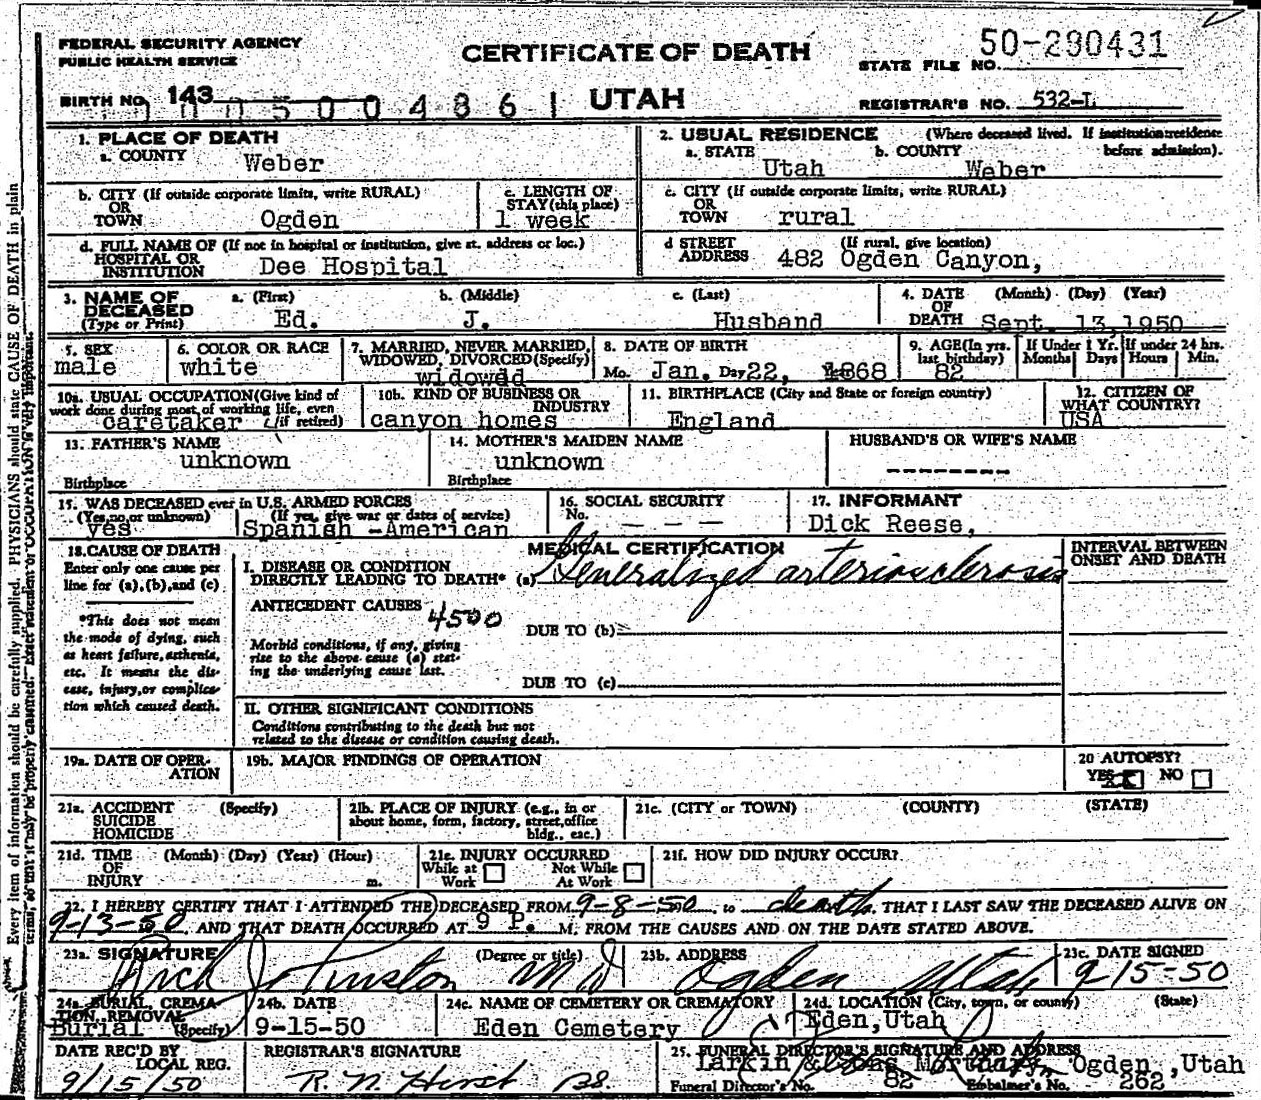 FEDERAL SECURITY AGENCY
PUBLIC HEALTH SERVICE
CERTIFICATE OF DEATH
50-290431
STATE FILE NO.
BIRTH NO. 143
UTAH
REGISTRAR'S NO. 532-L
1. PLACE OF DEATH
a. COUNTY Weber
2. USUAL RESIDENCE (Where deceased lived. If institution: residence before admission).
a. STATE Utah b. COUNTY Weber
b. CITY (If outside corporate limits, write RURAL)
OR
TOWN Ogden
c. LENGTH OF
STAY (this place)
1 week
c. CITY (If outside corporate limits, write RURAL)
OR
TOWN rural
d. FULL NAME OF (If not in hospital or institution, give st. address or loc.)
HOSPITAL OR
INSTITUTION Dee Hospital
d STREET (If rural, give location)
ADDRESS 482 Ogden Canyon,
3. NAME OF
DECEASED
(Type or Print)
a. (First) b. (Middle) c. (Last)
Ed. J. Husband
4. DATE (Month) (Day) (Year)
OF
DEATH Sept. 13, 1950
5. SEX
male
6. COLOR OR RACE
white
7. MARRIED, NEVER MARRIED,
WIDOWED, DIVORCED (Specify)
widowed
8. DATE OF BIRTH
Mo. Jan. Day 22, 1868
9. AGE (In yrs.
last birthday)
82
If Under 1 Yr.
Months Days
If under 24 hrs.
Hours Min.
10a. USUAL OCCUPATION (Give kind of
work done during most of working life, even
if retired)
caretaker
10b. KIND OF BUSINESS OR
INDUSTRY
canyon homes
11. BIRTHPLACE (City and State or foreign country)
England
12. CITIZEN OF
WHAT COUNTRY?
USA
13. FATHER'S NAME
unknown
Birthplace
14. MOTHER'S MAIDEN NAME
unknown
Birthplace
HUSBAND'S OR WIFE'S NAME
--------
15. WAS DECEASED ever in U.S. ARMED FORCES
(Yes, no, or unknown) (If yes, give war or dates of service)
yes Spanish -American
16. SOCIAL SECURITY
No. - - -
17. INFORMANT
Dick Reese,
18. CAUSE OF DEATH
Enter only one cause per
line for (a), (b), and (c)
*This does not mean
the mode of dying, such
as heart failure, asthenia,
etc. It means the dis-
ease, injury, or complica-
tion which caused death.
MEDICAL CERTIFICATION
I. DISEASE OR CONDITION
DIRECTLY LEADING TO DEATH* (a) Generalized arteriosclerosis
INTERVAL BETWEEN
ONSET AND DEATH
ANTECEDENT CAUSES
4500
DUE TO (b)
Morbid conditions, if any, giving
rise to the above cause (a) stat-
ing the underlying cause last.
DUE TO (c)
II. OTHER SIGNIFICANT CONDITIONS
Conditions contributing to the death but not
related to the disease or condition causing death.
19a. DATE OF OPER-
ATION
19b. MAJOR FINDINGS OF OPERATION
20 AUTOPSY?
YES NO
21a. ACCIDENT (Specify)
SUICIDE
HOMICIDE
21b. PLACE OF INJURY (e.g., in or
about home, form, factory, street, office
bldg., esc.)
21c. (CITY or TOWN) (COUNTY) (STATE)
21d. TIME (Month) (Day) (Year) (Hour)
OF
INJURY m.
21e. INJURY OCCURRED
While at Work
Not While At Work
21f. HOW DID INJURY OCCUR?
22. I HEREBY CERTIFY THAT I ATTENDED THE DECEASED FROM 9-8-50, to death, THAT I LAST SAW THE DECEASED ALIVE ON
9-13-50, AND THAT DEATH OCCURRED AT 9 P. M. FROM THE CAUSES AND ON THE DATE STATED ABOVE.
23a. SIGNATURE (Degree or title)
Rich Johnston MD
23b. ADDRESS
Ogden Utah
23c. DATE SIGNED
9-15-50
24a. BURIAL, CREMA-
TION, REMOVAL
Burial (Specify)
24b. DATE
9-15-50
24c. NAME OF CEMETERY OR CREMATORY
Eden Cemetery
24d. LOCATION (City, town, or county) (State)
Eden, Utah
DATE REC'D BY
LOCAL REG.
9/15/50
REGISTRAR'S SIGNATURE
R. N. Hirst
25. FUNERAL DIRECTOR'S SIGNATURE AND ADDRESS
Larkin & Sons Mortuary Ogden, Utah
Funeral Director's No. 82 Embalmer's No. 262
Every item of information should be carefully supplied. PHYSICIANS should state CAUSE OF DEATH in plain
terms, so that it may be properly classified. Exact statement of OCCUPATION is very important.